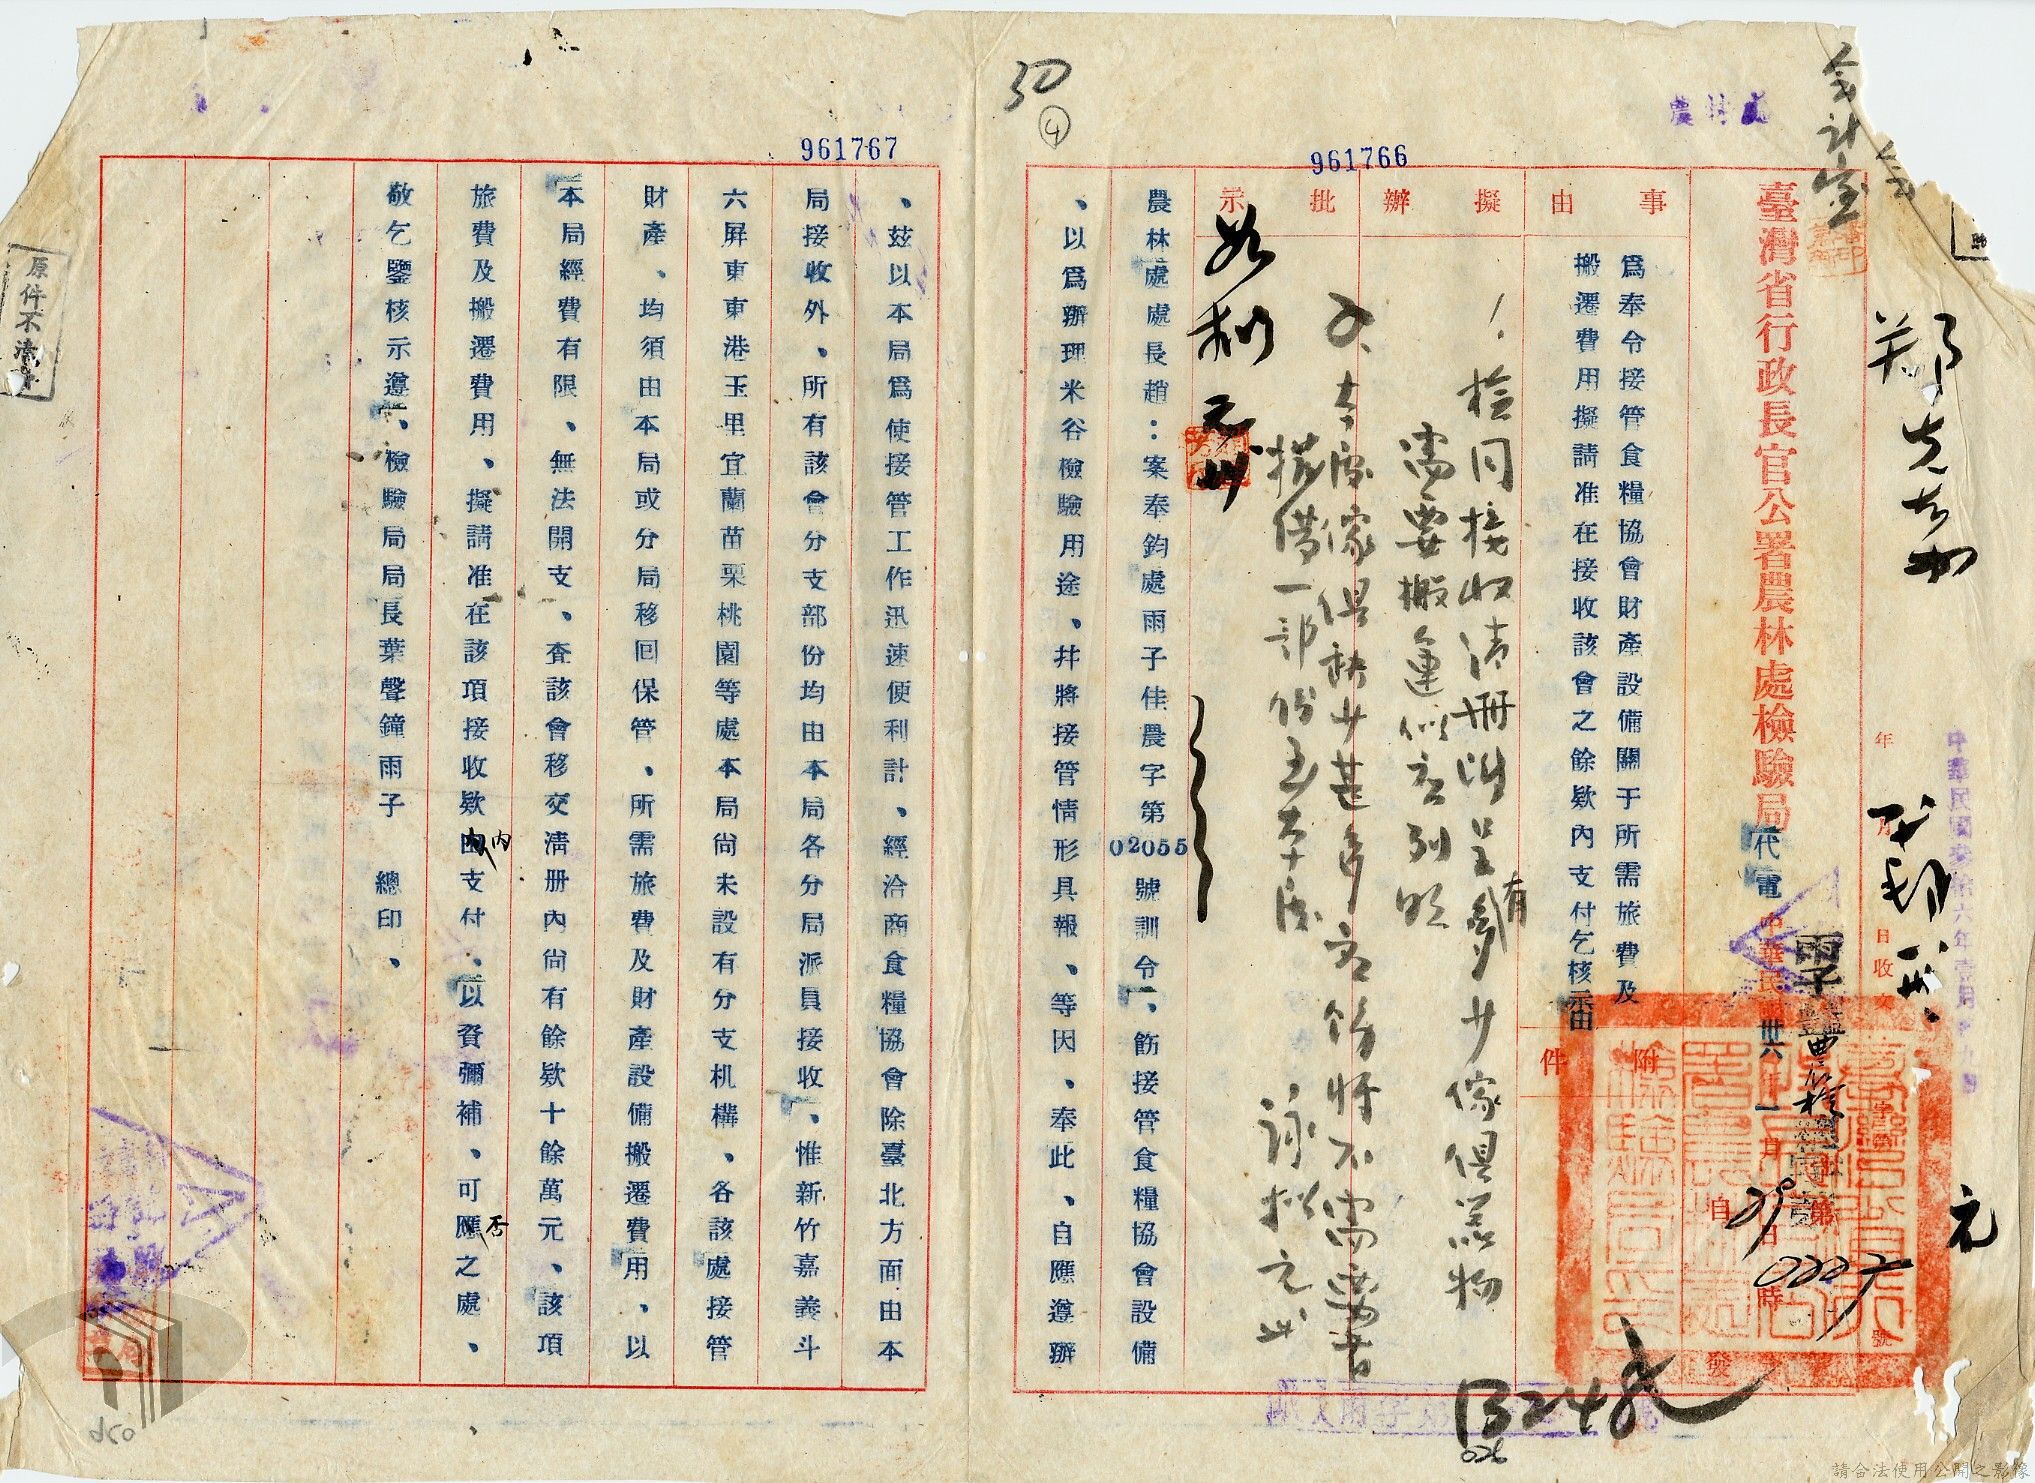 會計室
農林處
50
4
961766
961767
臺灣省行政長官公署農林處檢驗局代電
中華民國卅六年一月29日
自
時
發
年
月
日收文
字第
號
附
件
事
由
擬
辦
批
示
為奉令接管食糧協會財產設備關于所需旅費及
搬遷費用擬請准在接收該會之餘欵內支付乞核示由
1.檢同接收清冊附呈有多少傢俱器物
需要搬運似應列明
2.本處傢俱缺少甚多應飭將不需要者
撥借一部份至本處
如擬
農林處處長趙：案奉鈞處雨子佳農字第02055號訓令一、飭接管食糧協會設備
、以爲辦理米谷檢驗用途、幷將接管情形具報、等因、奉此、自應遵辦
、茲以本局爲使接管工作迅速便利計、經洽商食糧協會除臺北方面由本
局接收外、所有該會分支部份均由本局各分局派員接收、惟新竹嘉義斗
六屏東東港玉里宜蘭苗栗桃園等處本局尙未設有分支机構、各該處接管
財產、均須由本局或分局移回保管、所需旅費及財產設備搬遷費用、以
本局經費有限、無法開支、查該會移交淸册內尙有餘欵十餘萬元、該項
旅費及搬遷費用、擬請准在該項接收欵內支付、以資彌補、可否之處、
敬乞鑒核示遵一、檢驗局局長葉聲鐘雨子　總印、
原件不清
13248
050
請合法使用公開之影像